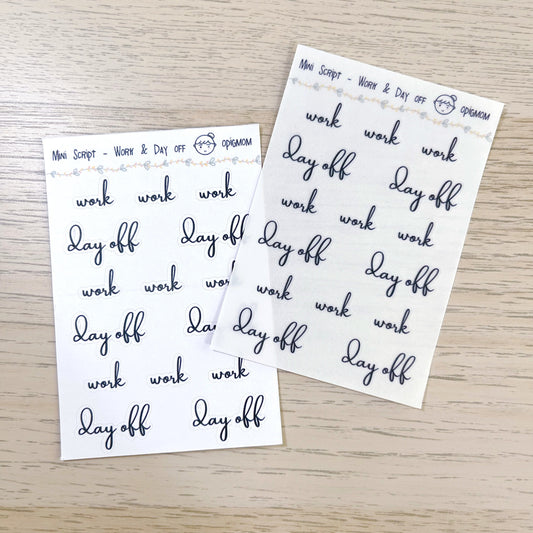 Mini Script - Work & Day off OPIGMOM
work work work
day off day off
work work wo
day off da
work work work
day off day off
Mini Script - Work & Day off OPIGMOM
work work work
day off day off
work work work
day off day off
work work work
day off day off